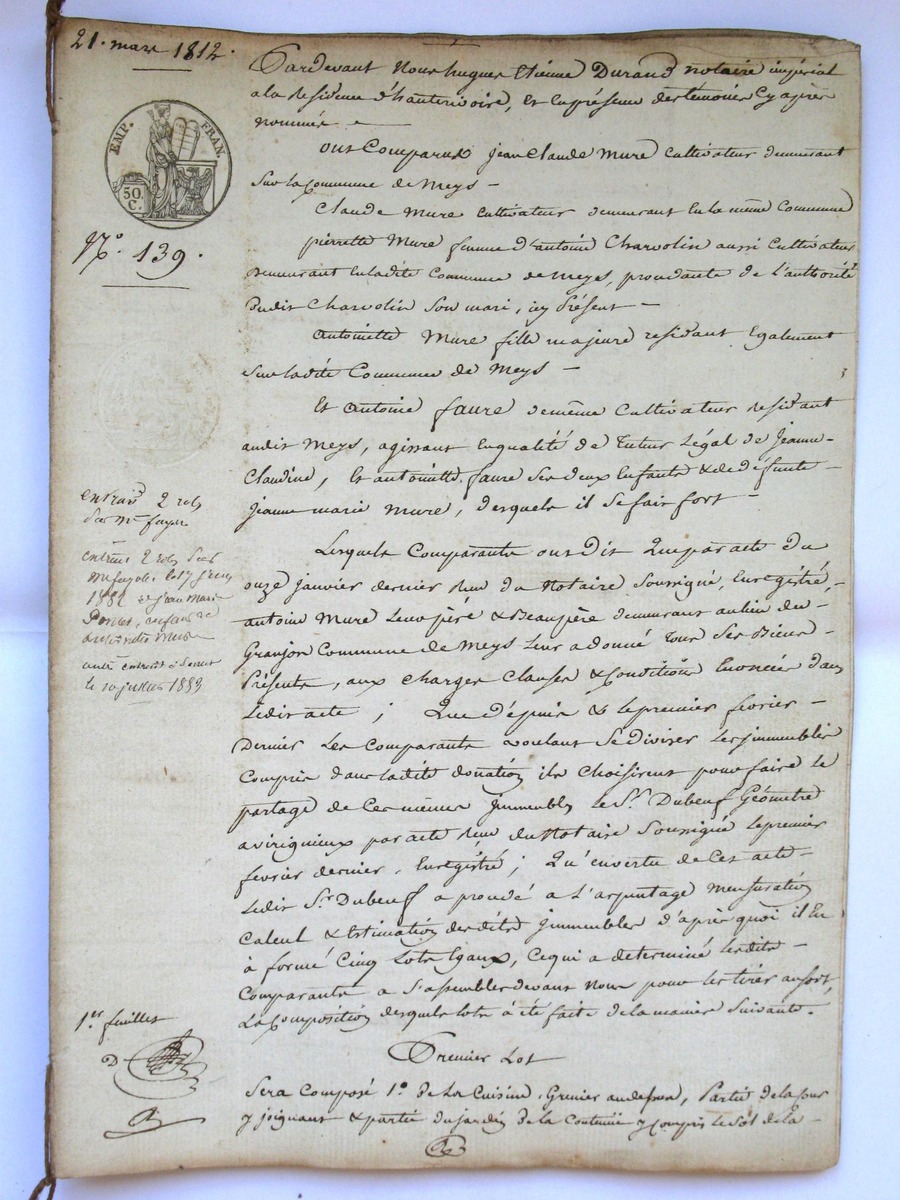 21. mars 1812.
EMP. FRAN.
50 C.
N.° 139.
Pardevant Nous hugues Etienne Durand notaire impérial
a la Residence d'hauterivoire, et en présence des temoins cy après
nommés
ont Comparus jean Claude Mure cultivateur demeurant
Sur la Commune de Meys
Claude Mure cultivateur demeurant en la même Commune
pierrette Mure femme d'antoine Charvolin aussi cultivateur
demeurant en ladite Commune de Meys, procedante de l'authorité
dudit Charvolin Son mari, icy présent
Antoinette Mure fille majeure residant Egalement
Sur ladite Commune de Meys
Et Antoine faure de même Cultivateur Residant
audit Meys, agissant en qualité de Tuteur Légal de Jeanne
Claudine, Et antoinette faure Ses deux Enfants & de défunte
Jeanne marie Mure, desquels il Se fait fort
Lesquels Comparants ont Dit Que par acte du
onze janvier dernier Reçu du Notaire Soussigné, Enregistré,
antoine Mure Leur père & Beaupère demeurant au lieu du
Granjon Commune de Meys Leur a donné tous Ses Biens
Présents, aux charges Clauses & Conditions Enoncées dans
Ledit acte ; Que d'épuis & le premier fevrier
Dernier Les Comparants voulant Se diviser Les jmmeubles
Compris dans ladite donation ils Choisirent pour faire le
partage de Ces mêmes jmmeubles le S.r Dubeuf Géomètre
a virigneux par acte Reçu du Notaire Soussigné le premier
fevrier dernier, Enregistré ; Qu'en vertu de Cet acte
Ledit S.r Dubeuf a procédé a L'arpentage Mensuration
Calcul & Estimation desdits jmmeubles d'après quoi il En
à formé Cinq Lots Egaux, Ce qui a determiné lesdits
Comparants a S'assembler devant Nous pour les tirer au sort,
La Composition desquels lots a été faite de la maniere Suivante.
Premier Lot
Sera Composé 1.° de La Cuisine, Grenier au dessus, Partie de la Cour
y joignant & partie du jardin de la Contenue y compris le Sol de la
entrait 2 rols
entrait 2 rols
1882 jean Marie
entrait
le 10 juillet 1883
1.er feuillet
D